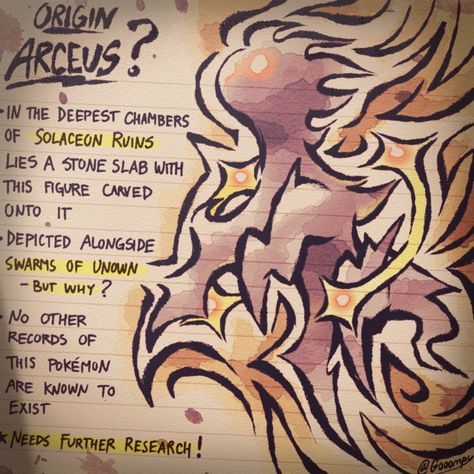 ORIGIN
ARCEUS?
• IN THE DEEPEST CHAMBERS
OF SOLACEON RUINS
LIES A STONE SLAB WITH
THIS FIGURE CARVED
ONTO IT
• DEPICTED ALONGSIDE
SWARMS OF UNOWN
- BUT WHY?
• NO OTHER
RECORDS OF
THIS POKÉMON
ARE KNOWN TO
EXIST
* NEEDS FURTHER RESEARCH!